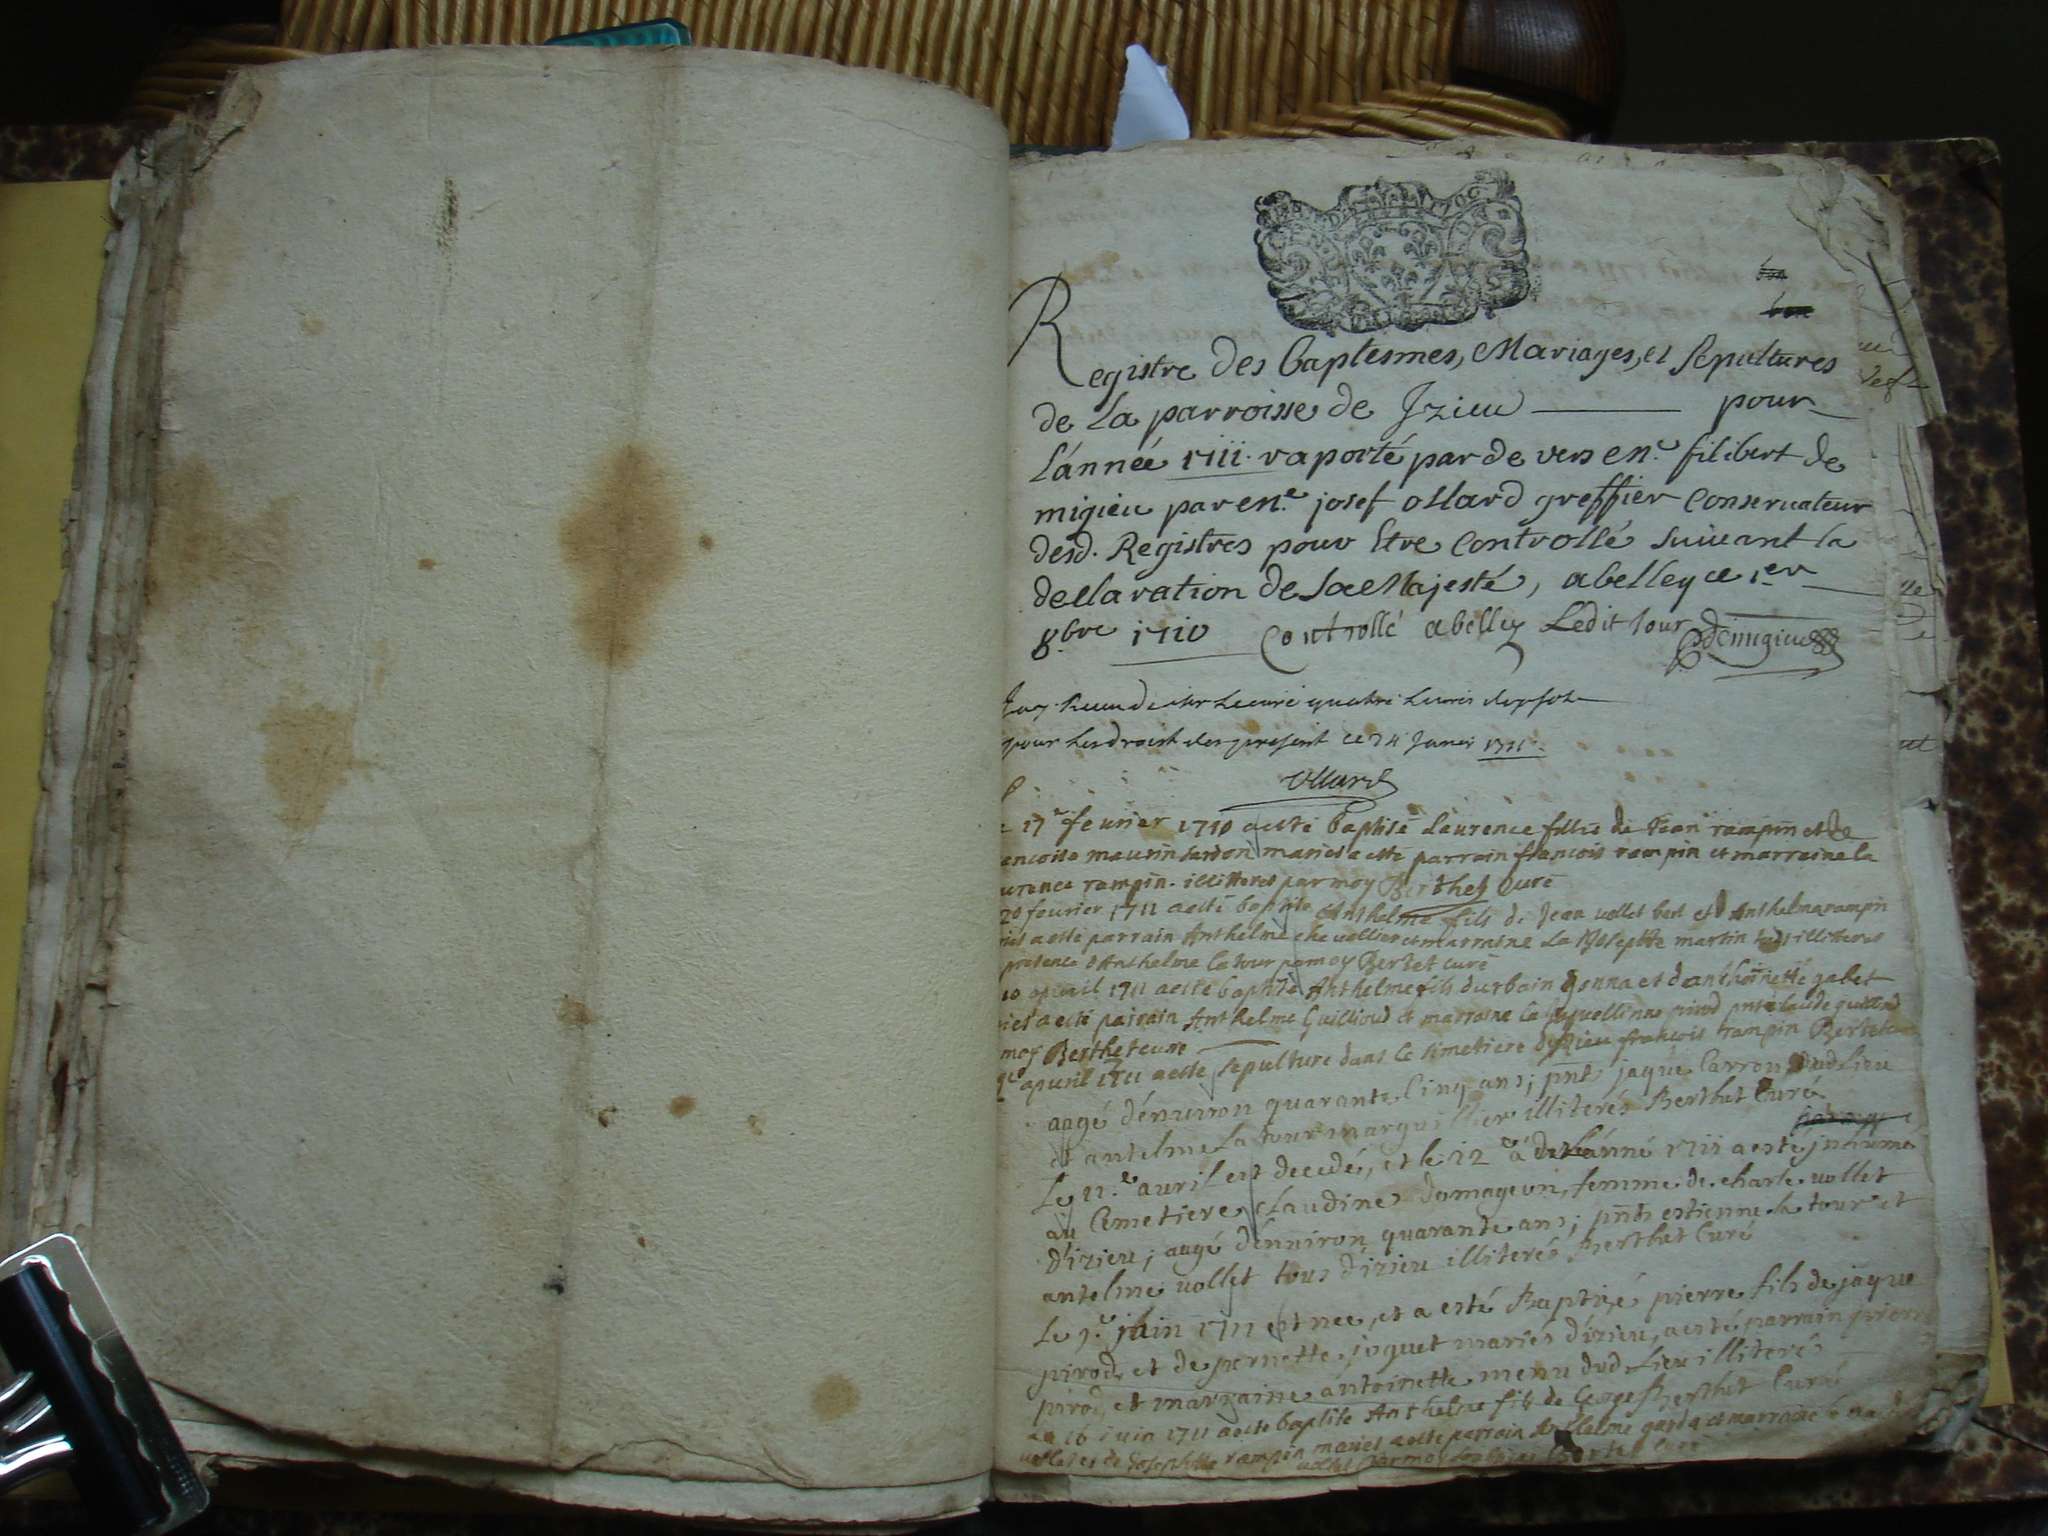 Registre des baptesmes, Mariages, et sepultures
de la parroisse de Izieu pour
L'année 1711. raporté par de vers en.e filibert de
migieu par en.e josef ollard greffier conseruateur
desd. Registres pour Etre Controllé suiuant la
declaration de sa Majesté, a belley ce 1.er
8.bre 1710 Controllé a belley Ledit Jour Demigieu
quatre Liures
pour Les droits des present ce 24 Januier 1711.
Ollard
17e feurier 1710 a esté baptisé Laurence fillie de Jean rampin et de
maurin mariés a esté parrain francois rampin et marraine la
rampin. illitteres par moy Berthet Curé
20 feurier 1711 a esté baptisé Anthelme fils de Jean vollet et d Anthelma rampin
a esté parrain Anthelme cheuollier et marraine La Josephte martin illitteres
presence d'Anthelme latour par moy Bertet curé
10 apuril 1711 a esté baptisé Anthelme fils d'urbain gonna et d'anthoinette gabet
a esté parrain Anthelme Guillioud et marraine la pirod claude guilliod
moy Berthet cure
apuril 1711 a esté sepulture dans le simetiere d'izieu francois rampin
aagé d'enuiron quarante Cinq ans; pnts jaque Carron dud Lieu
et antelme La tour marguillier illiterés Berthet Curé
Le 11.e auril est decedé, et le 12e de L'année 1711 a esté inhumé
au Cemetiere Claudine domageon, femme de charle vollet
d'izieu; aagé d'enuiron quarante ans; pnts estienne la tour et
antelme vollet tous d'izieu illiterés Berthet Curé
Le juin 1711 est nee, et a esté Baptisé pierre fils de jaque
pirod, et de pernette joguet mariés d'izieu, a esté parrain
pirod, et marraine antoinette menu dud Lieu illiterés
16 juin 1711 a esté baptisé Anthelme fils de Berthet Curé
vollet et de Josephte rampin mariés a esté parrain Anthelme et marraine
par moy